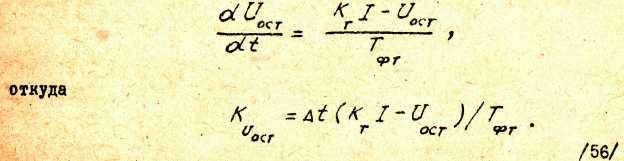 dU_ост / dt = (K_т I - U_ост) / T_фт ,
откуда
K_U_ост = Δt (K_т I - U_ост) / T_фт .
/56/